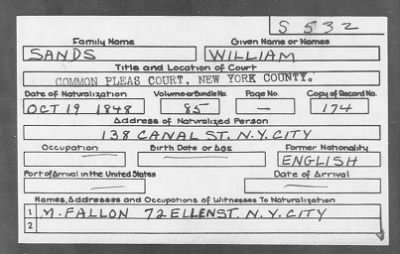 S 532
Family Name Given Name or Names
SANDS WILLIAM
Title and Location of Court
COMMON PLEAS COURT, NEW YORK COUNTY.
Date of Naturalization Volume or Bundle No. Page No. Copy of Record No.
OCT 19 1848 85 — 174
Address of Naturalized Person
138 CANAL ST. N.Y. CITY
Occupation Birth Date or Age Former Nationality
— — ENGLISH
Port of Arrival in the United States Date of Arrival
— —
Names, Addresses and Occupations of Witnesses To Naturalization
1 M. FALLON 72 ELLEN ST. N.Y. CITY
2